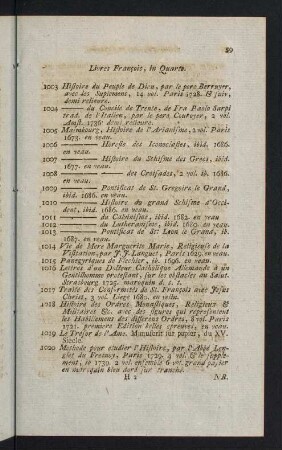 59
Livres François, in Quarto.
1003 Histoire du Peuple de Dieu, par le pere Berruyer,
avec les Suplemens, 14 vol. Paris 1728. & suiv.
demi relieure.
1004 —— du Concile de Trente, de Fra Paolo Sarpi
trad. de l'Italien, par le pere Courayer, 2 vol.
Amst. 1736. demi relieure.
1005 Maimbourg, Histoire de l'Arianisme, 2 vol. Paris
1673. en veau.
1006 —— Heresie des Iconoclastes, ibid. 1686.
en veau.
1007 —— Histoire du Schisme des Grecs, ibid.
1677. en veau.
1008 —— des Croisades, 2 vol. ib. 1686.
en veau.
1009 —— Pontificat de St. Gregoire le Grand,
ibid. 1686. en veau.
1010 —— Histoire du grand Schisme d'Occi-
dent, ibid. 1686. en veau.
1011 —— du Calvinisme, ibid. 1682. en veau
1012 —— du Lutheranisme, ibid. 1680. en veau.
1013 —— Pontificat de St. Leon le Grand, ib.
1687. en veau.
1014 Vie de Mere Marguerite Marie, Religieuse de la
Visitation, par J. J. Languet, Paris 1629. en veau.
1015 Panegyriques de Flechier, ib. 1696. en veau.
1016 Lettres d'un Docteur Catholique Allemande à un
Gentilhomme protestant, sur les obstacles au Salut.
Strasbourg 1725. maroquin d. s. t.
1017 Traité des Conformités de St. François avec Jesus
Christ, 3 vol. Liege 1680. en velin.
1018 Histoire des Ordres, Monastiques, Religieux &
Militaires &c. avec des figures qui représentent
les Habillemens des differens Ordres, 8 vol. Paris
1721. premiere Edition belles epreuves, en veau.
1019 Le Tresor de l'Ame. Manuscrit sur papier, du XV.
Siecle.
1020 Methode pour étudier l'Histoire, par l'Abbé Len-
glet du Fresnoy, Paris 1729. 4 vol. & le supple-
ment, ib. 1739. 2 vol. ensemble 6 vol. grand papier
en maroquin bleu doré sur tranche
H 2 NB.